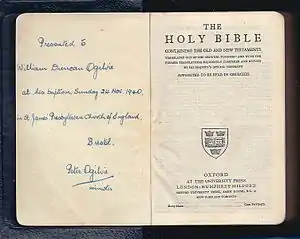 Presented to
William Duncan Ogilvie
at his baptism, Sunday 24 NOV. 1940.
in St James Presbyterian Church of England,
Bristol.
Peter Ogilvie
minister
THE
HOLY BIBLE
CONTAINING THE OLD AND NEW TESTAMENTS
TRANSLATED OUT OF THE ORIGINAL TONGUES AND WITH THE
FORMER TRANSLATIONS DILIGENTLY COMPARED AND REVISED
BY HIS MAJESTY'S SPECIAL COMMAND
APPOINTED TO BE READ IN CHURCHES
OXFORD
AT THE UNIVERSITY PRESS
LONDON: HUMPHREY MILFORD
OXFORD UNIVERSITY PRESS, AMEN HOUSE, E.C. 4
NEW YORK AND TORONTO